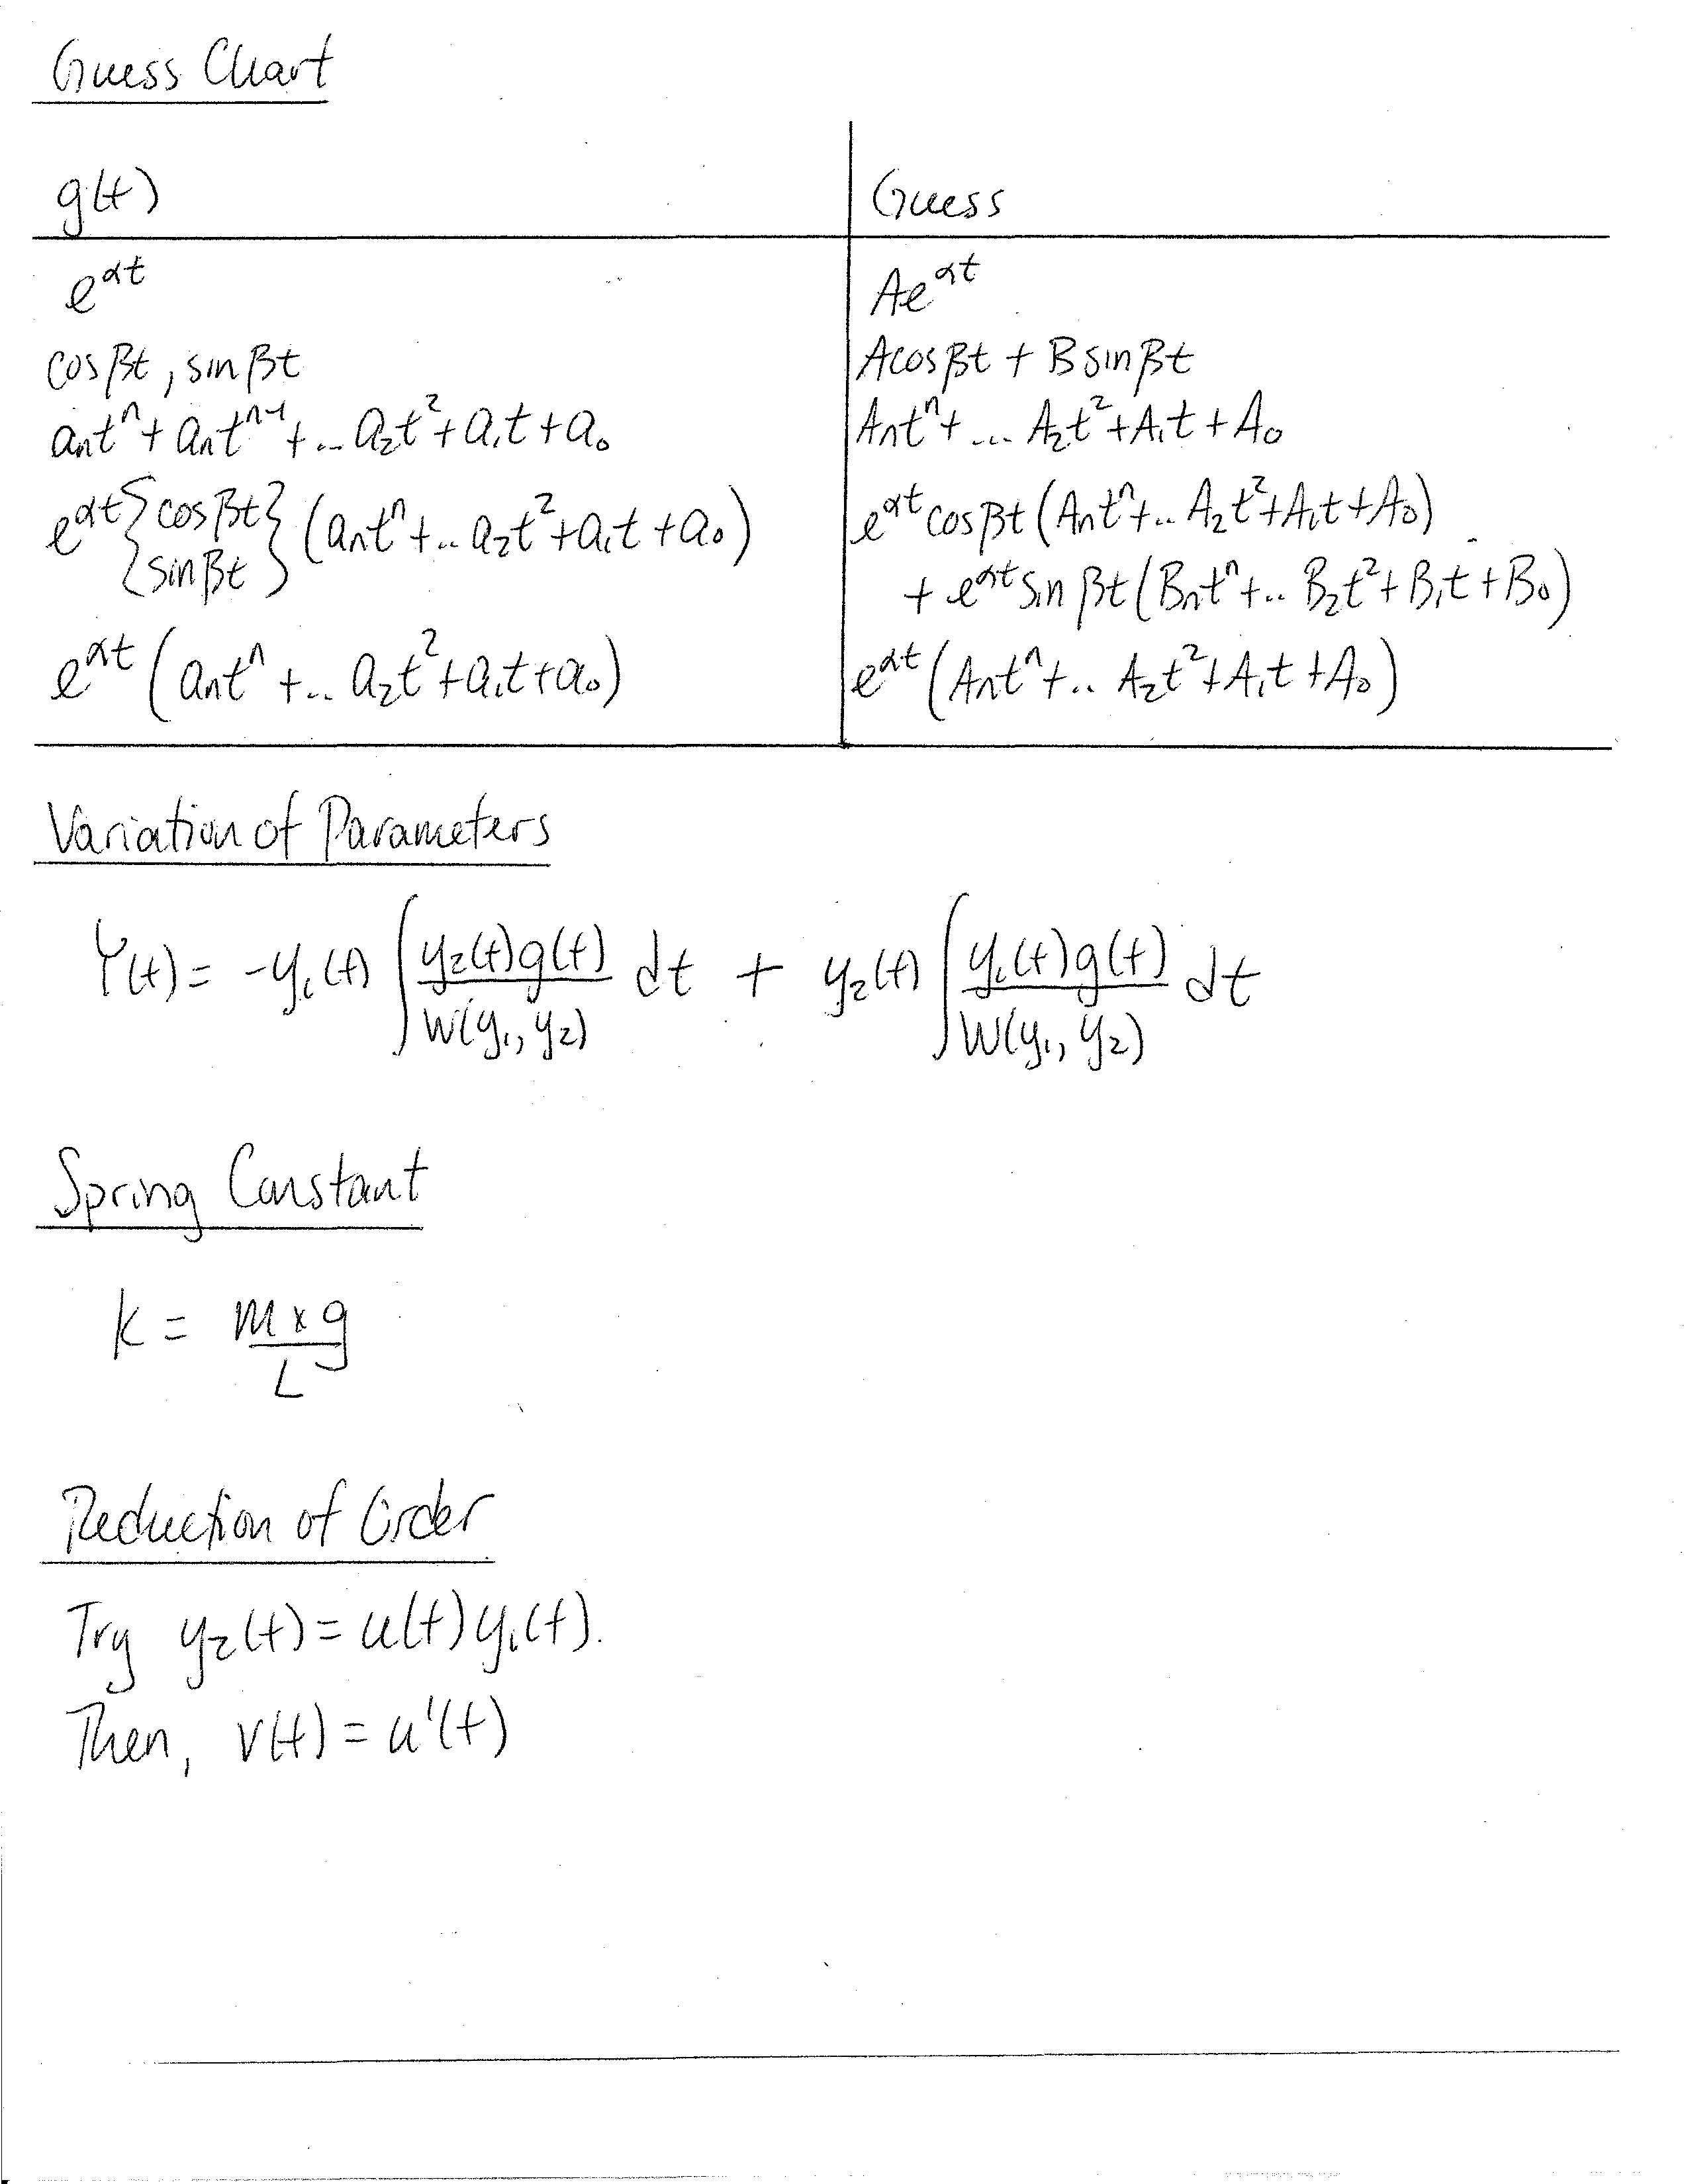 Guess Chart
g(t) Guess
e^{αt} Ae^{αt}
cosβt, sinβt Acosβt + Bsinβt
a_n t^n + a_n t^{n-1} + ... a_2 t^2 + a_1 t + a_0 A_n t^n + ... A_2 t^2 + A_1 t + A_0
e^{αt} {cosβt} (a_n t^n + .. a_2 t^2 + a_1 t + a_0) e^{αt} cosβt (A_n t^n + .. A_2 t^2 + A_1 t + A_0)
{sinβt} + e^{αt} sinβt (B_n t^n + .. B_2 t^2 + B_1 t + B_0)
e^{αt} (a_n t^n + .. a_2 t^2 + a_1 t + a_0) e^{αt} (A_n t^n + .. A_2 t^2 + A_1 t + A_0)
Variation of Parameters
Y(t) = -y_1(t) ∫ y_2(t)g(t) / W(y_1, y_2) dt + y_2(t) ∫ y_1(t)g(t) / W(y_1, y_2) dt
Spring Constant
k = m × g / L
Reduction of Order
Try y_2(t) = u(t) y_1(t).
Then, v(t) = u'(t)